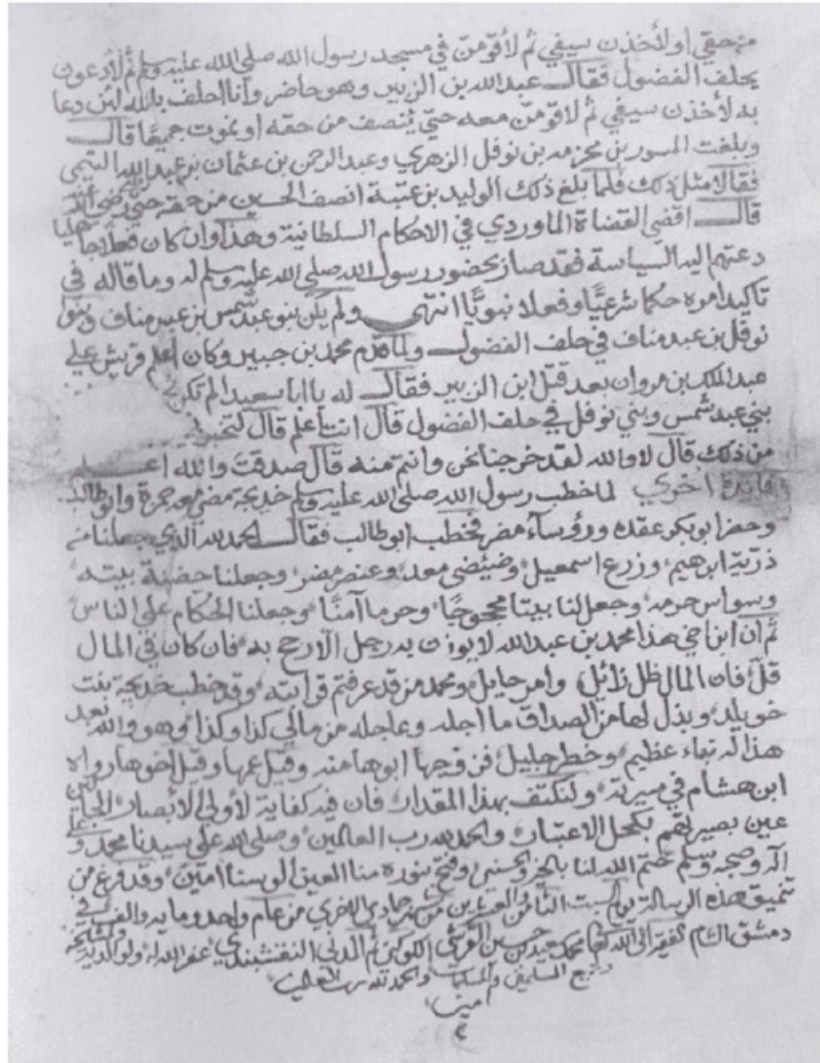 من حقي او لأخذن سيفي ثم لأقومن في مسجد رسول الله صلى الله عليه وسلم ثم لأدعون
بحلف الفضول فقال عبد الله بن الزبير وهو حاضر وأنا احلف بالله لئن دعا
به لأخذن سيفي ثم لاقومن معه حتى ينصف من حقه او نموت جميعًا قال
وبلغت المسور بن مخرمه بن نوفل الزهري وعبد الرحمن بن عثمان بن عبيد الله التيمي
فقالا مثل ذلك فلما بلغ ذلك الوليد بن عتبة انصف الحسين من حقه حتى رضي
قال اقضى القضاة الماوردي في الاحكام السلطانية وهذا وان كان فعلا جاهليا
دعتهم اليه السياسة فقد صار بحضور رسول الله صلى الله عليه وسلم له وما قاله في
تاكيد امره حكما شرعيًا وفعلا نبويًا انتهى ولم يكن بنو عبد شمس بن عبد مناف وبنو
نوفل بن عبد مناف في حلف الفضول ولما قدم محمد بن جبير وكان أعلم قريش على
عبد الملك بن مروان بعد قتل ابن الزبير فقال له يا ابا سعيد الم تكن
بني عبد شمس وبني نوفل في حلف الفضول قال انت اعلم قال لتخبرني
من ذلك قال لا والله لقد خرجنا نحن وانتم منه قال صدقت والله اعلم
فايدة اخرى لما خطب رسول الله صلى الله عليه وسلم خديجة مضى معه حمزة وابو طالب
وحضر ابو بكر عقده ورؤسآء مضر فخطب ابو طالب فقال الحمد لله الذي جعلنا من
ذرية ابرهيم وزرع اسمعيل وضئضئ معد وعنصر مضر وجعلنا حضنة بيته
وسواس حرمه وجعل لنا بيتا محجوجًا وحرما آمنًا وجعلنا الحكام على الناس
ثم ان ابن اخي هذا محمد بن عبد الله لا يوزن به رجل الا رجح به فان كان في المال
قل فان المال ظل زائل وامر حايل ومحمد من قد عرفتم قرابته وقد خطب خديجة بنت
خويلد وبذل لها من الصداق ما اجله وعاجله من مالي كذا وكذا وهو والله بعد
هذا له نباء عظيم وخطر جليل فزوجها ابوها منه وقيل عمها وقيل اخوها رواه
ابن هشام في سيرته ولنكتف بهذا المقدار فان فيه كفاية لأولي الأبصار
عين بصيرتهم بكحل الاعتبار والحمد لله رب العالمين وصلى الله على سيدنا محمد وعلى
آله وصحبه وسلم ختم الله لنا بالخير والحسنى وفتح بنوره منا العين الوسنا امين وقد فرغ من
تنميق هذه الرسالة يوم السبت الثامن والعشرين من شهر جمادي الاخري من عام واحد ومايه والف في
دمشق الشام الفقير الى الله تعالى محمد سعيد بن حسين القرشي الكوكني ثم المدني النقشبندي غفر الله له ولوالديه ولمشايخه
وجميع المسلمين والمسلمات والحمد لله رب العالمين
امين